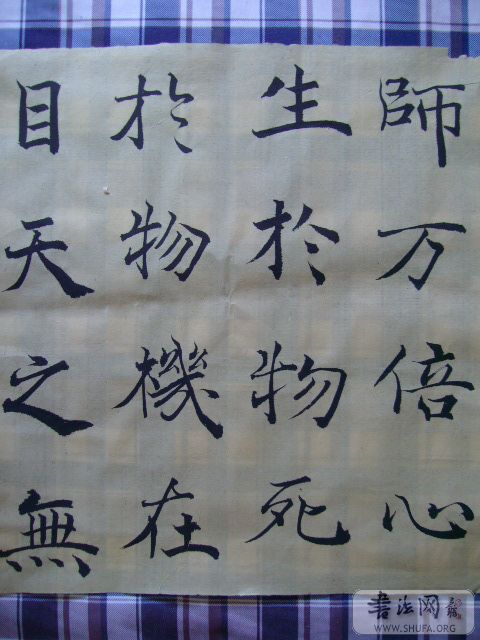 師万倍心
生於物死
於物機在
目天之無
書法网
WWW.SHUFA.ORG